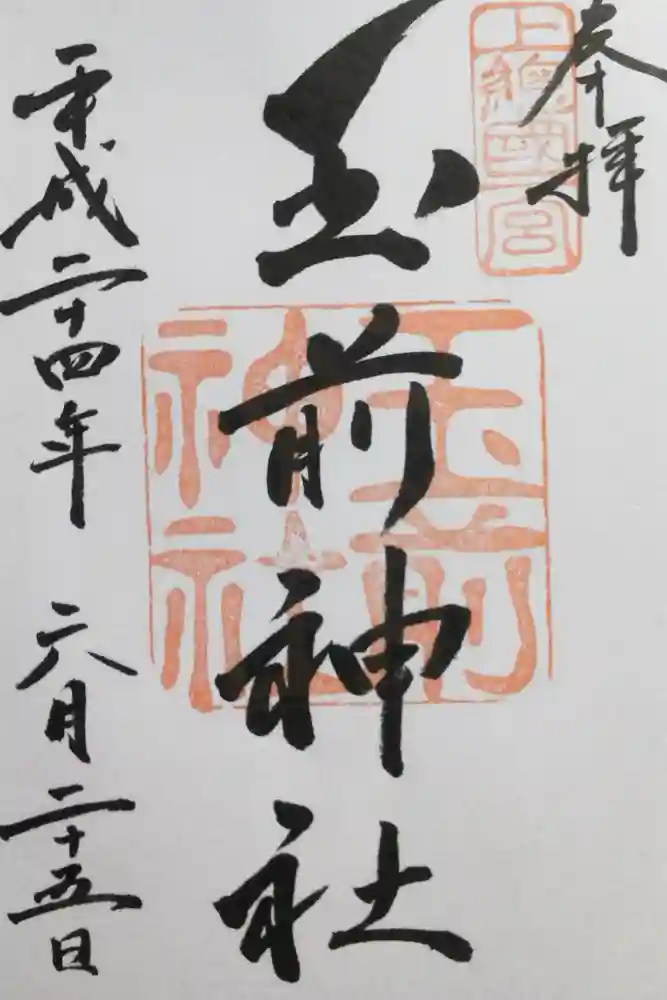 奉拝
上總國一宮
玉前神社
玉前神社
平成二十四年 六月二十五日